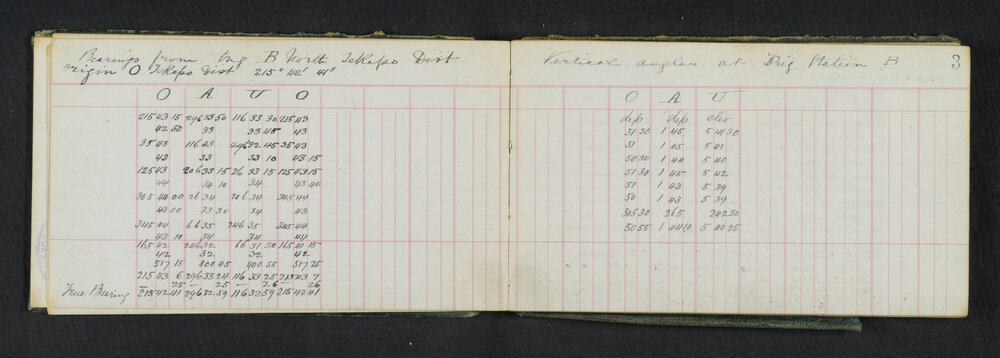 Bearings from trig B North Tekapo Dist
origin O Tekapo Dist 215° 42' 41"
O A U O
215 43 15 296 33 50 116 33 30 215 43
42 50 33 33 45 43
35 43 116 33 296 32 45 35 43
43 33 33 10 43 15
125 43 206 33 15 26 33 15 125 43 15
44 34 10 34 43 40
305 44 00 26 34 206 34 305 44
43 00 33 30 34 43
345 44 66 35 246 35 345 44
43 10 34 34 44
165 42 246 32 66 31 30 165 41 15
42 32 32 42
517 15 800 45 400 55 517 25
215 43 6 296 33 24 116 33 25 215 43 7
25 25 26 26
True Bearing 215 42 41 296 32 59 116 32 59 215 42 41
Vertical angles at Trig Station B 3
O A U
dep dep elev
51 30 1 45 5 41 30
51 1 45 5 41
50 30 1 44 5 40
51 30 1 45 5 42
51 1 43 5 39
50 1 43 5 39
305 30 265 242 30
50 55 1 44 10 5 40 25